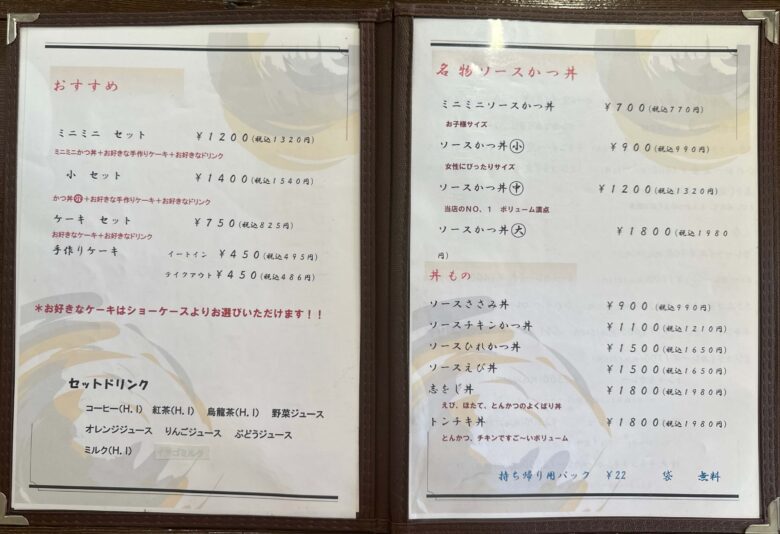 おすすめ
ミニミニ セット ¥1200(税込1320円)
ミニミニかつ丼+お好きな手作りケーキ+お好きなドリンク
小 セット ¥1400(税込1540円)
かつ丼㊙+お好きな手作りケーキ+お好きなドリンク
ケーキ セット ¥750(税込825円)
お好きなケーキ+お好きなドリンク
手作りケーキ イートイン ¥450(税込495円)
テイクアウト ¥450(税込486円)
*お好きなケーキはショーケースよりお選びいただけます!!
セットドリンク
コーヒー(H.I) 紅茶(H.I) 烏龍茶(H.I) 野菜ジュース
オレンジジュース りんごジュース ぶどうジュース
ミルク(H.I)
名物ソースかつ丼
ミニミニソースかつ丼 ¥700(税込770円)
お子様サイズ
ソースかつ丼小 ¥900(税込990円)
女性にぴったりサイズ
ソースかつ丼中 ¥1200(税込1320円)
当店のNO、1 ボリューム満点
ソースかつ丼大 ¥1800(税込1980
円)
丼もの
ソースささみ丼 ¥900(税込990円)
ソースチキンかつ丼 ¥1100(税込1210円)
ソースひれかつ丼 ¥1500(税込1650円)
ソースえび丼 ¥1500(税込1650円)
志をじ丼 ¥1800(税込1980円)
えび、ほたて、とんかつのよくばり丼
トンチキ丼 ¥1800(税込1980円)
とんかつ、チキンですご~いボリューム
持ち帰り用パック ¥22 袋 無料